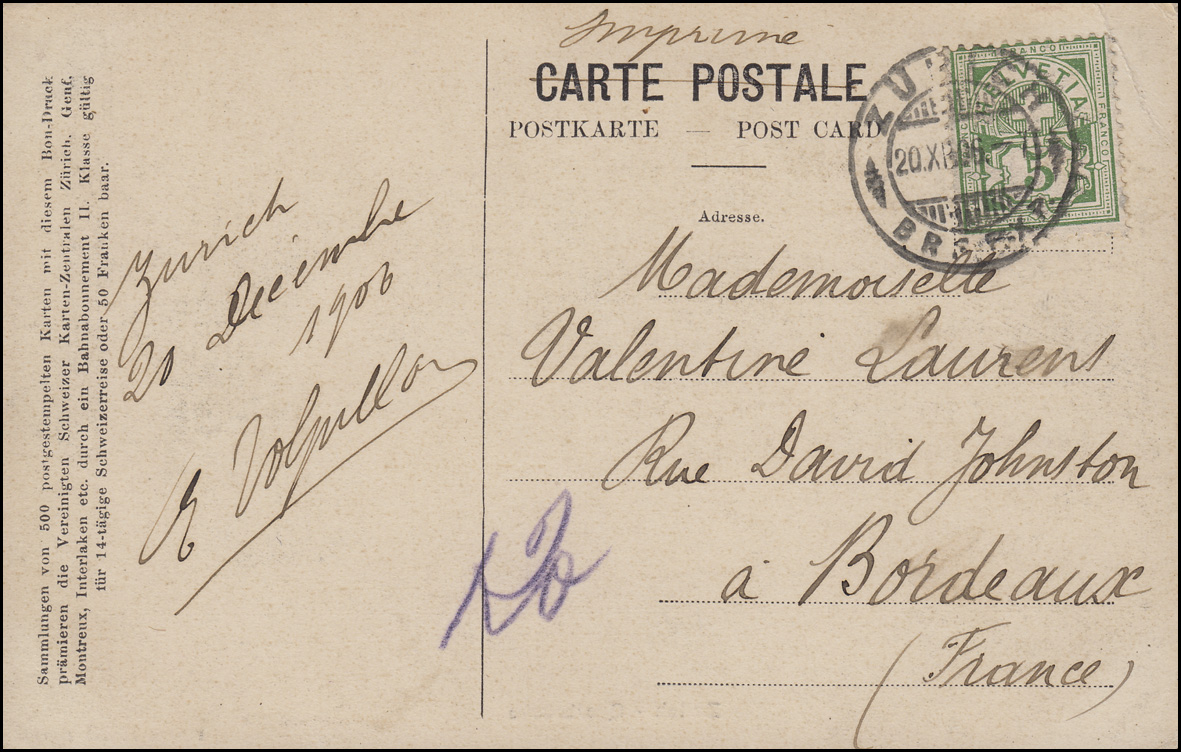 Imprime
CARTE POSTALE
POSTKARTE — POST CARD
Adresse.
FRANCO
HELVETIA
FRANCO
5
20.XII.06.
Sammlungen von 500 postgestempelten Karten mit diesem Bon-Druck
prämieren die Vereinigten Schweizer Karten-Zentralen Zürich, Genf,
Montreux, Interlaken etc. durch ein Bahnabonnement II. Klasse gültig
für 14-tägige Schweizerreise oder 50 Franken baar.
Zurich
20 Decembre
1906
Mademoiselle
Valentine Laurens
Rue David Johnston
à Bordeaux
(France)